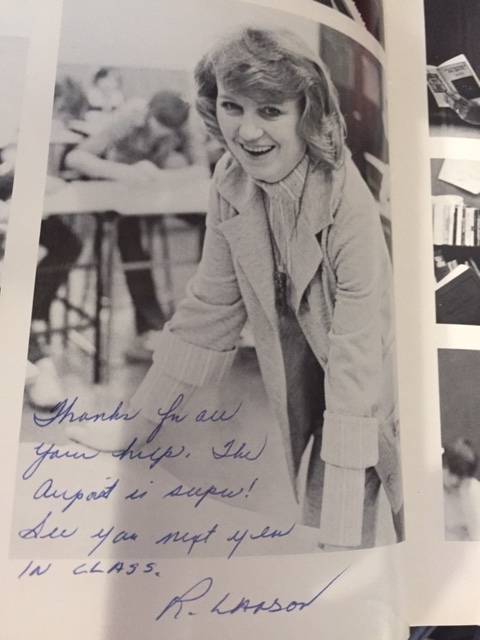 Thanks for all
your help. The
Airport is super!
See you next year
IN CLASS.
R. LARSON